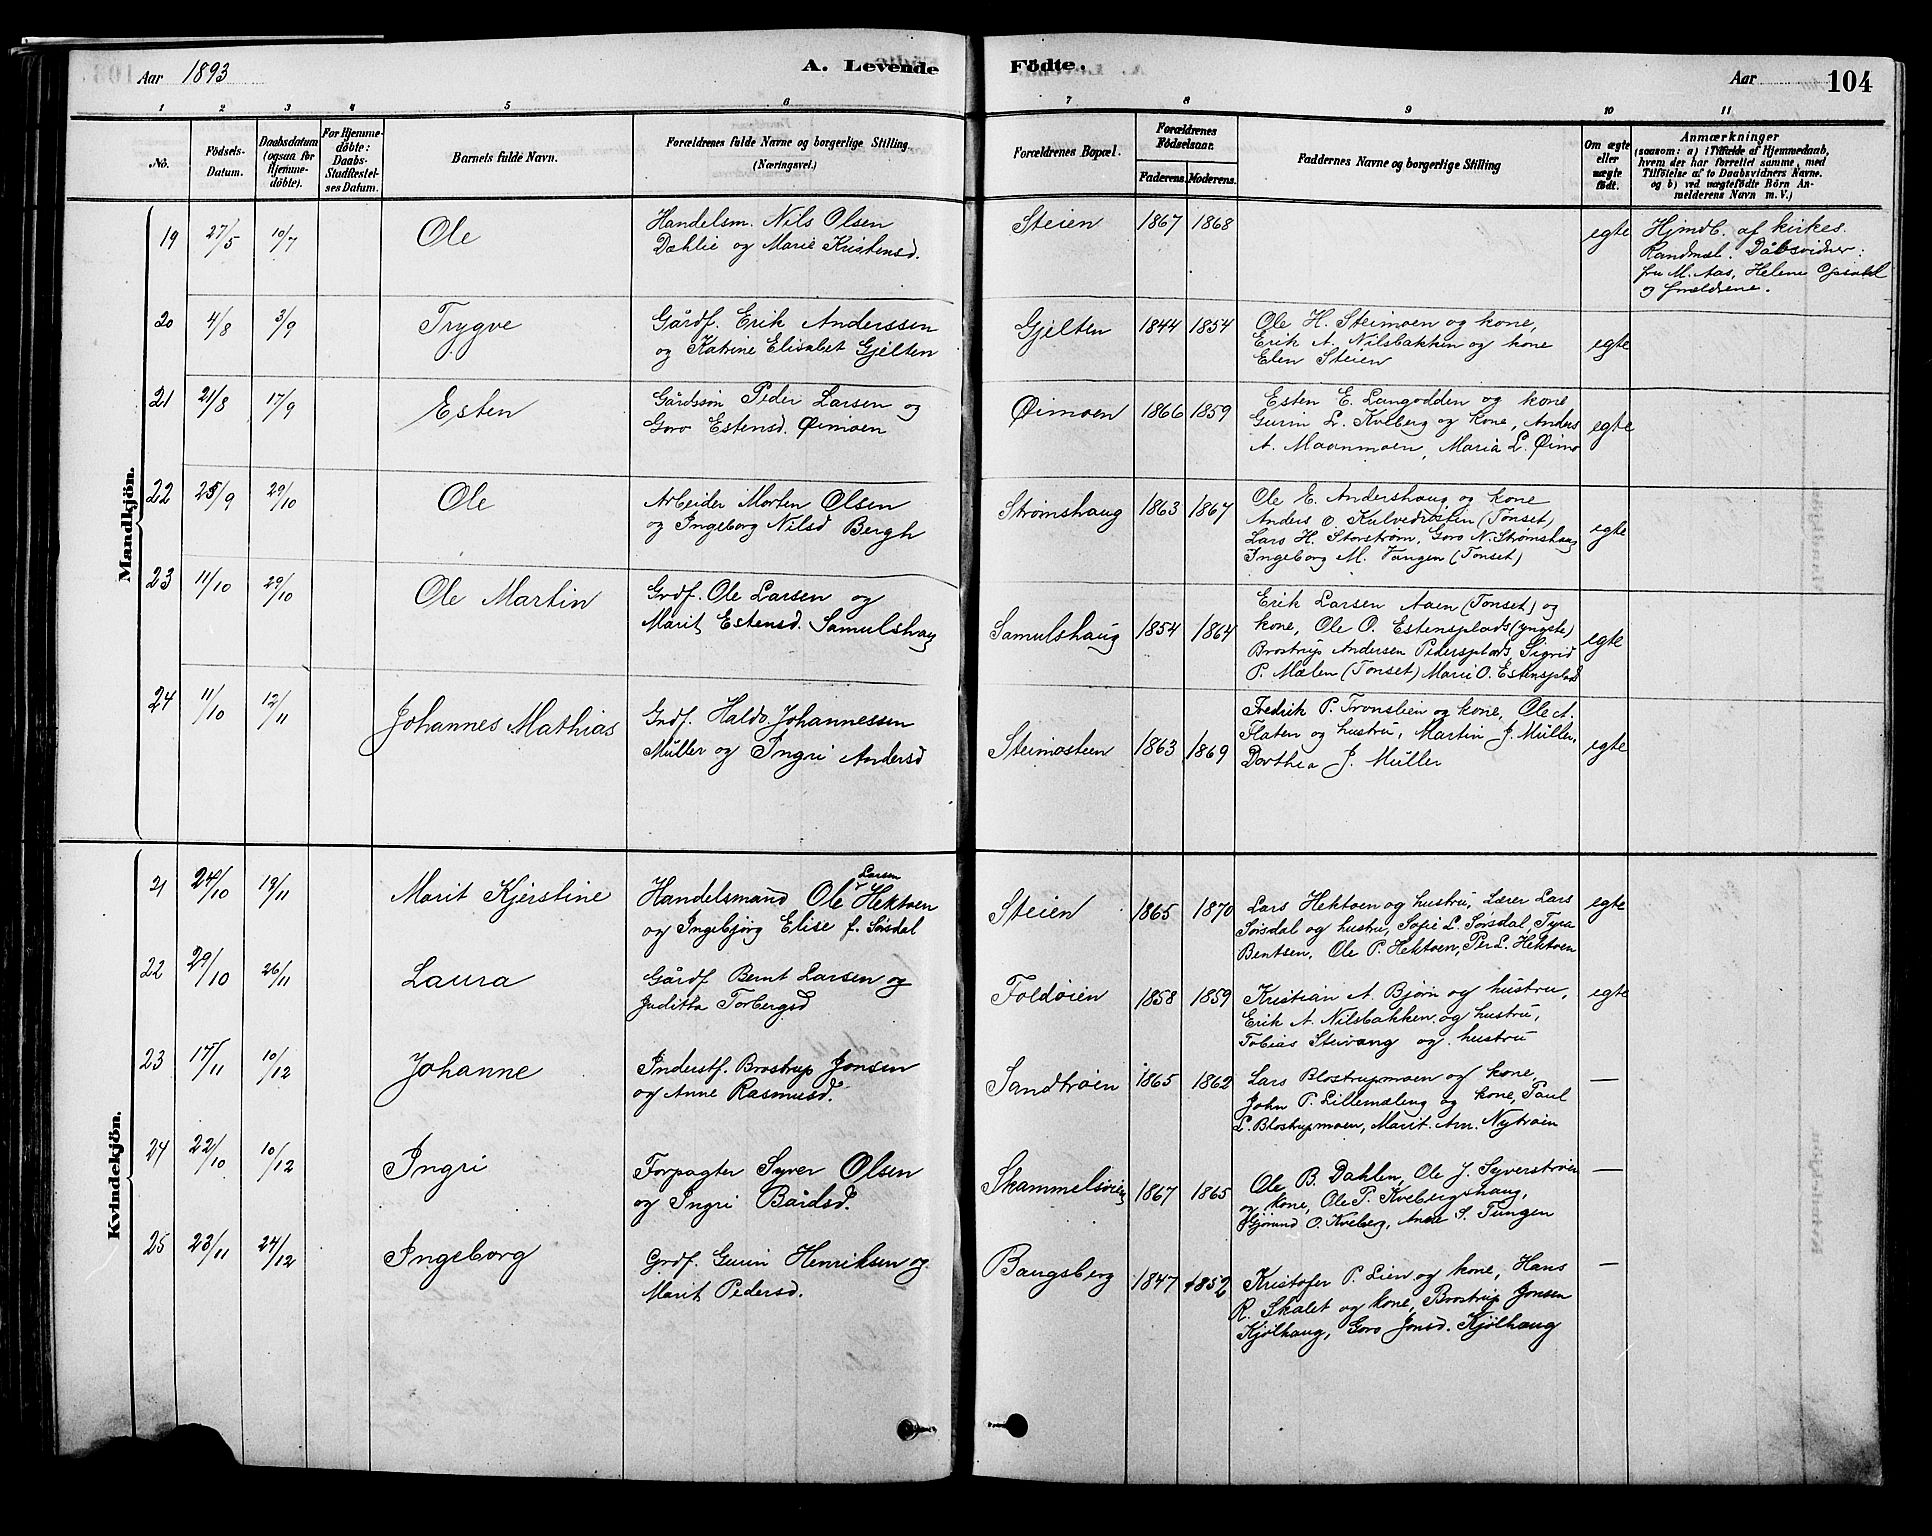 Aar 1893
A. Levende
Fødte.
Aar
104
1 2 3 4 5 6 7 8 9 10 11
No.
Fødsels-
Datum.
Daabsdatum
(ogsaa for
Hjemme-
døbte).
For Hjemme-
døbte:
Daabs-
Stadfæstel-
ses Datum.
Barnets fulde Navn.
Forældrenes fulde Navne og borgerlige Stilling
(Næringsvei.)
Forældrenes Bopæl.
Forældrenes
Fødselsaar.
Faderens. Moderens.
Faddernes Navne og borgerlige Stilling
Om ægte
eller
uægte
født.
Anmærkninger
(saasom: a) i Tilfælde af Hjemmedaab,
hvem der har forrettet samme, med
Tilføielse af to Daabsvidners Navne.
og b) ved uægtefødte Børn An-
melderens Navn m. V.)
Mandkjön.
19 27/5 10/7 Ole
Handelsm. Nils Olsen
Dæhlie og Marie Kristensd.
Steien 1867 1868 egte
Hjmdb. af kirkes.
Randmæl. Dåbsvidner:
fru M. Aas, Helene
og forældrene.
20 4/8 3/9 Trygve
Gårdf. Erik Anderssen
og Katrine Elisabet Gjelten
Gjelten 1844 1854
Ole H. Steimoen og kone,
Erik A. Nilsbakken og kone
Elen Steien
egte
21 21/8 17/9 Esten
Gårdssøn Peder Larsen og
Goro Estensd. Øimoen
Øimoen 1866 1859
Esten E. Langodden og kone
Gurin L. Kvlberg og kone, Anders
A. Moanmoen, Maria L. Øimo
egte
22 25/9 29/10 Ole
Arbeider Morten Olsen
og Ingeborg Nilsd Bergh
Strømshaug 1863 1867
Ole E. Andershaug og kone
Anders O. Kulvedrøsten (Tonset)
Lars H. Storstrøm, Goro N. Strømshaug
Ingeborg M. Vangen (Tonset)
egte
23 11/10 29/10 Ole Martin
Grdf. Ole Larsen og
Marit Estensd. Samulshaug
Samulshaug 1854 1864
Erik Larsen Aaen (Tonset) og
kone, Ole O. Estensplads (yngste)
Brostrup Andersen Pedersplads Sigrid
P. Mælen (Tonset) Marie O. Estensplad
egte
24 11/10 12/11 Johannes Mathias
Grdf. Haldo Johannessen
Müller og Ingri Andersd
Steimosteen 1863 1869
Fredrik P. Tronslien og kone, Ole A.
Flaten og hustru, Martin J. Müller,
Dorthea J. Müller
egte
Kvindekjön.
21 24/10 19/11 Marit Kjerstine
Larsen
Handelsmand Ole Hektoen
og Ingebjørg Elise f. Sørsdal
Steien 1865 1870
Lars Hektoen og hustru, Lærer Lars
Sørsdal og hustru, Sofie L. Sørsdal, Tyra
Bentsen, Ole P. Hektoen, Per L. Hektoen
egte
22 29/10 26/11 Laura
Gårdf Bernt Larsen og
Juditha Torbergsd
Foldøien 1858 1859
Kristian A. Bjørn og hustru,
Erik A. Nilsbakken og hustru,
Tobias Steivang og hustru
egte
23 15/11 10/12 Johanne
Inderstf. Brostrup Jonsen
og Anne Rasmusd.
Sandtrøen 1865 1862
Lars Blostrupmoen og kone,
John P. Lillemæleng og kone, Paul
L. Blostrupmoen, Marit. Am. Nytrøen
—
24 22/10 10/12 Ingri
Forpagter Syver Olsen
og Ingri Bårdsd.
Skammelsøien 1867 1865
Ole B. Dahlen, Ole J. Syverstrøen
og kone, Ole P. Kvebergshaug,
O. Kveberg, Anne S. Tungen
—
25 23/11 24/12 Ingeborg
Grdf. Gurin Henriksen og
Marit Pedersd.
Bangsberg 1847 1852
Kristofer P. Lien og kone, Hans
R. Skalet og kone, Brostrup Jonsen
Kjølhaug, Goro Jonsd. Kjølhaug
—